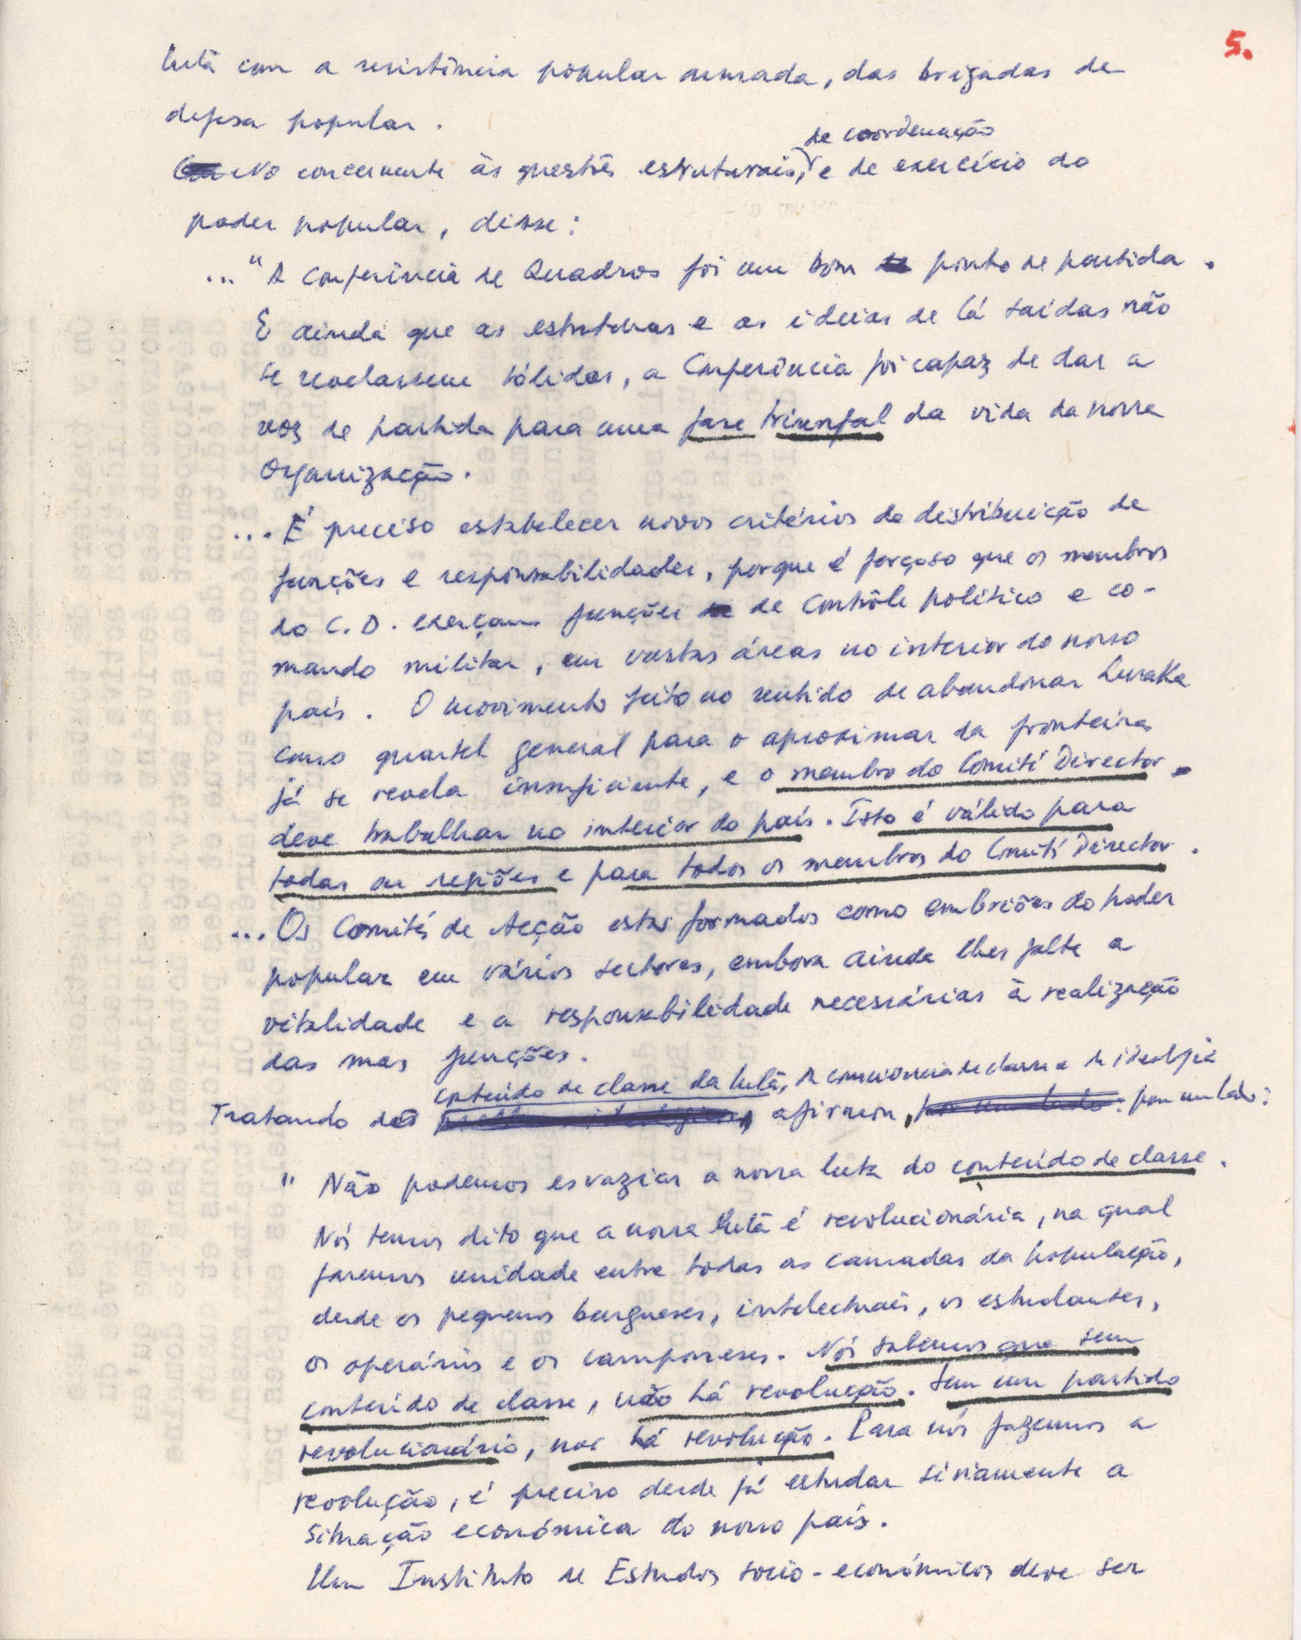 5.
luta com a resistência popular armada, das brigadas de
defesa popular.
No concernente às questões estruturais, de coordenação e de exercício do
poder popular, disse:
... "A Conferência de Quadros foi um bom ponto de partida.
E ainda que as estruturas e as ideias de lá saídas não
se revelassem sólidas, a Conferência foi capaz de dar a
voz de partida para uma fase triunfal da vida da nossa
Organização.
... É preciso estabelecer novos critérios de distribuição de
funções e responsabilidades, porque é forçoso que os membros
do C.D. exerçam funções de contrôle político e co-
mando militar, em vastas áreas no interior do nosso
país. O movimento feito no sentido de abandonar Lusaka
como quartel general para o aproximar da fronteira
já se revela insuficiente, e o membro do Comité Director
deve trabalhar no interior do país. Isto é válido para
todas as regiões e para todos os membros do Comité Director.
... Os Comités de Acção estão formados como embriões do poder
popular em vários sectores, embora ainda lhes falte a
vitalidade e a responsabilidade necessárias à realização
das suas funções.
Tratando do conteúdo de classe da luta, da consciência de classe e da ideologia
afirmou, por um lado:
" Não podemos esvaziar a nossa luta do conteúdo de classe.
Nós temos dito que a nossa luta é revolucionária, na qual
faremos unidade entre todas as camadas da população,
desde os pequenos burgueses, intelectuais, os estudantes,
os operários e os camponeses. Nós sabemos que sem
conteúdo de classe, não há revolução. Sem um partido
revolucionário, não há revolução. Para nós fazermos a
revolução, é preciso desde já estudar sèriamente a
situação económica do nosso país.
Um Instituto de Estudos socio-económicos deve ser